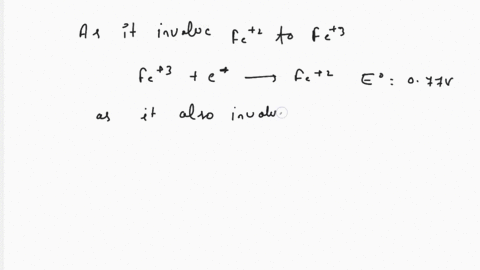 As it involve Fe+2 to Fe+3
Fe+3 + e- ⟶ Fe+2 E°: 0.77V
as it also involv